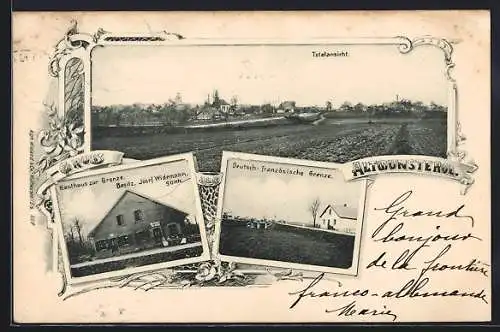 Totalansicht.
GRUSS
AUS
ALTMÜNSTEROL.
Gasthaus zur Grenze.
Besitz. Josef Widemann,
Deutsch-französische Grenze.
Grand
bonjour
de la frontière
franco-allemande
Marie